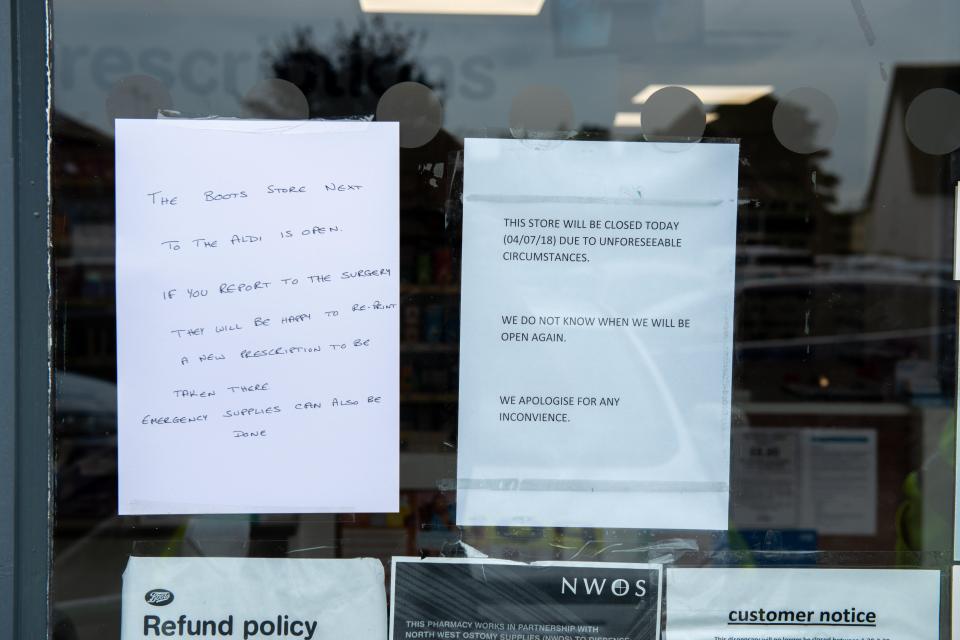 rescriptions
THE BOOTS STORE NEXT
TO THE ALDI IS OPEN.
IF YOU REPORT TO THE SURGERY
THEY WILL BE HAPPY TO RE-PRINT
A NEW PRESCRIPTION TO BE
TAKEN THERE.
EMERGENCY SUPPLIES CAN ALSO BE
DONE
THIS STORE WILL BE CLOSED TODAY
(04/07/18) DUE TO UNFORESEEABLE
CIRCUMSTANCES.
WE DO NOT KNOW WHEN WE WILL BE
OPEN AGAIN.
WE APOLOGISE FOR ANY
INCONVIENCE.
Boots
Refund policy
NWOS
THIS PHARMACY WORKS IN PARTNERSHIP WITH
NORTH WEST OSTOMY SUPPLIES (NWOS) TO DISPENSE
customer notice